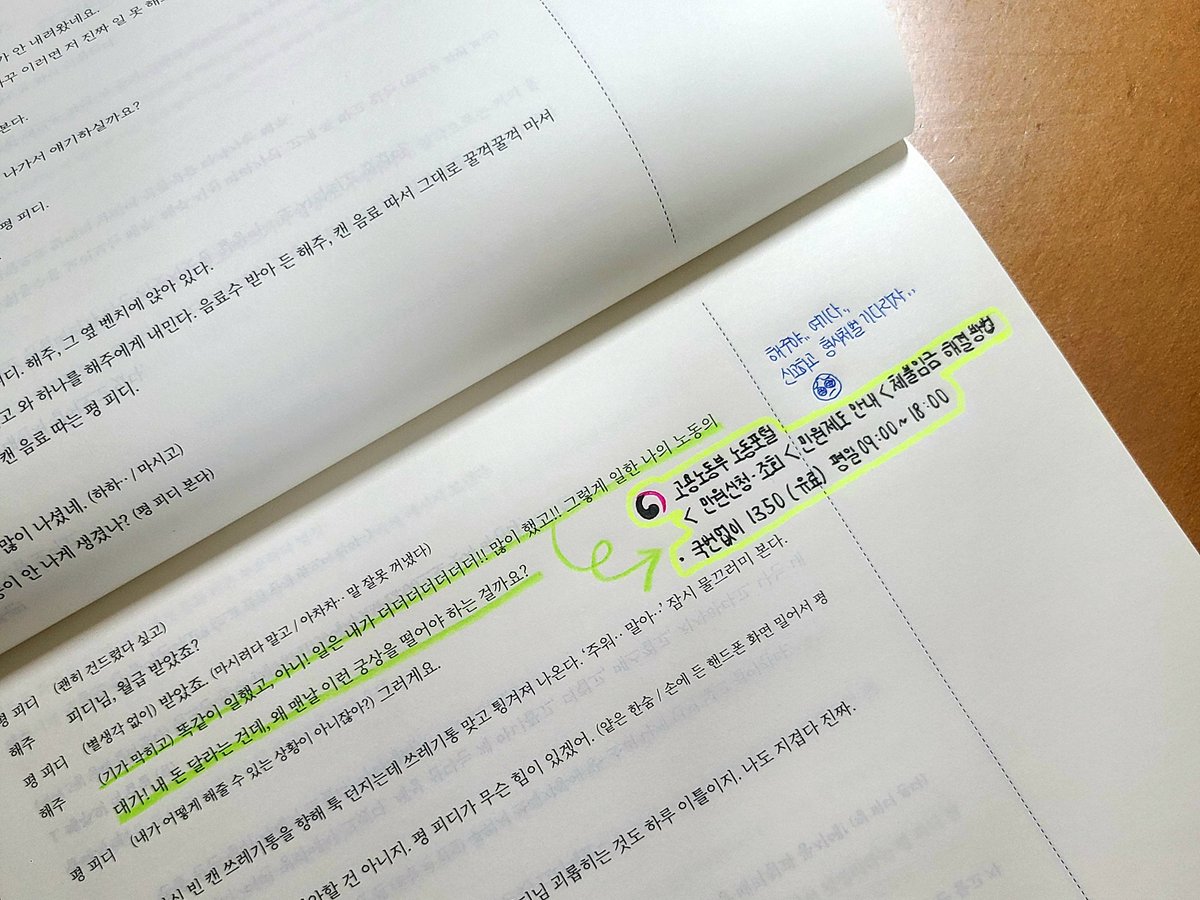 가 안 내려왔네요.
꾸 이러면 저 진짜 일 못 해
본다.
나가서 얘기하실까요?
평 피디.
디. 해주, 그 옆 벤치에 앉아 있다.
고 와 하나를 해주에게 내민다. 음료수 받아 든 해주, 캔 음료 따서 그대로 꿀꺽꿀꺽 마셔
캔 음료 따는 평 피디.
많이 나셨네. (하하‥ / 마시고)
이 안 나게 생겼나? (평 피디 본다)
평 피디 (괜히 건드렸다 싶고)
해주 피디님, 월급 받았죠?
평 피디 (별생각 없이) 받았죠. (마시려다 말고 / 아차차‥ 말 잘못 꺼냈다)
해주 (기가 막히고) 똑같이 일했고, 아니! 일은 내가 더더더더더더더!! 많이 했고!! 그렇게 일한 나의 노동의
대가! 내 돈 달라는 건데, 왜 맨날 이런 궁상을 떨어야 하는 걸까요?
평 피디 (내가 어떻게 해줄 수 있는 상황이 아니잖아?) 그러게요.
시 빈 캔 쓰레기통을 향해 툭 던지는데 쓰레기통 맞고 튕겨져 나온다. ‘주워‥ 말아‥’ 잠시 물끄러미 본다.
야할 건 아니지. 평 피디가 무슨 힘이 있겠어. (얕은 한숨 / 손에 든 핸드폰 화면 밀어서 평
디님 괴롭히는 것도 하루 이틀이지. 나도 지겹다 진짜.
해주야.. 여기다..
신고하고 형사처벌 기다리자..
고용노동부 노동포털
< 민원신청·조회 < 민원제도 안내 < 체불임금 해결 방법
· 국번없이 1350 (유료) 평일 09:00 ~ 18:00